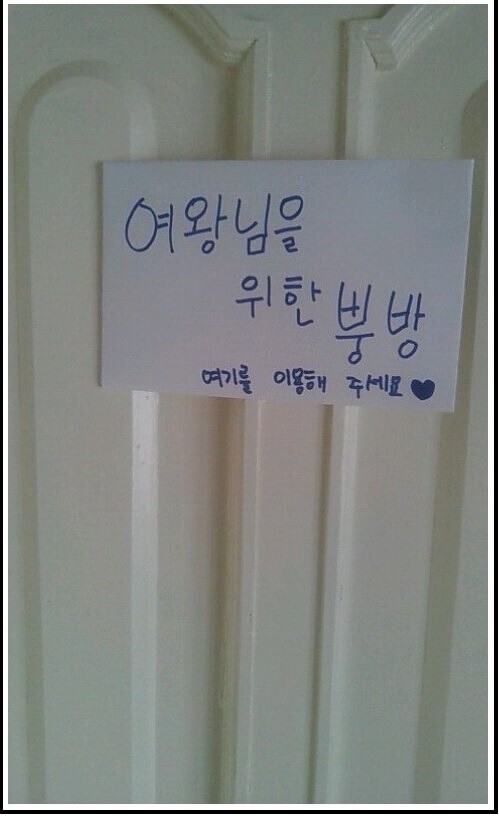 여왕님을
위한 뿡방
여기를 이용해 주세요♥